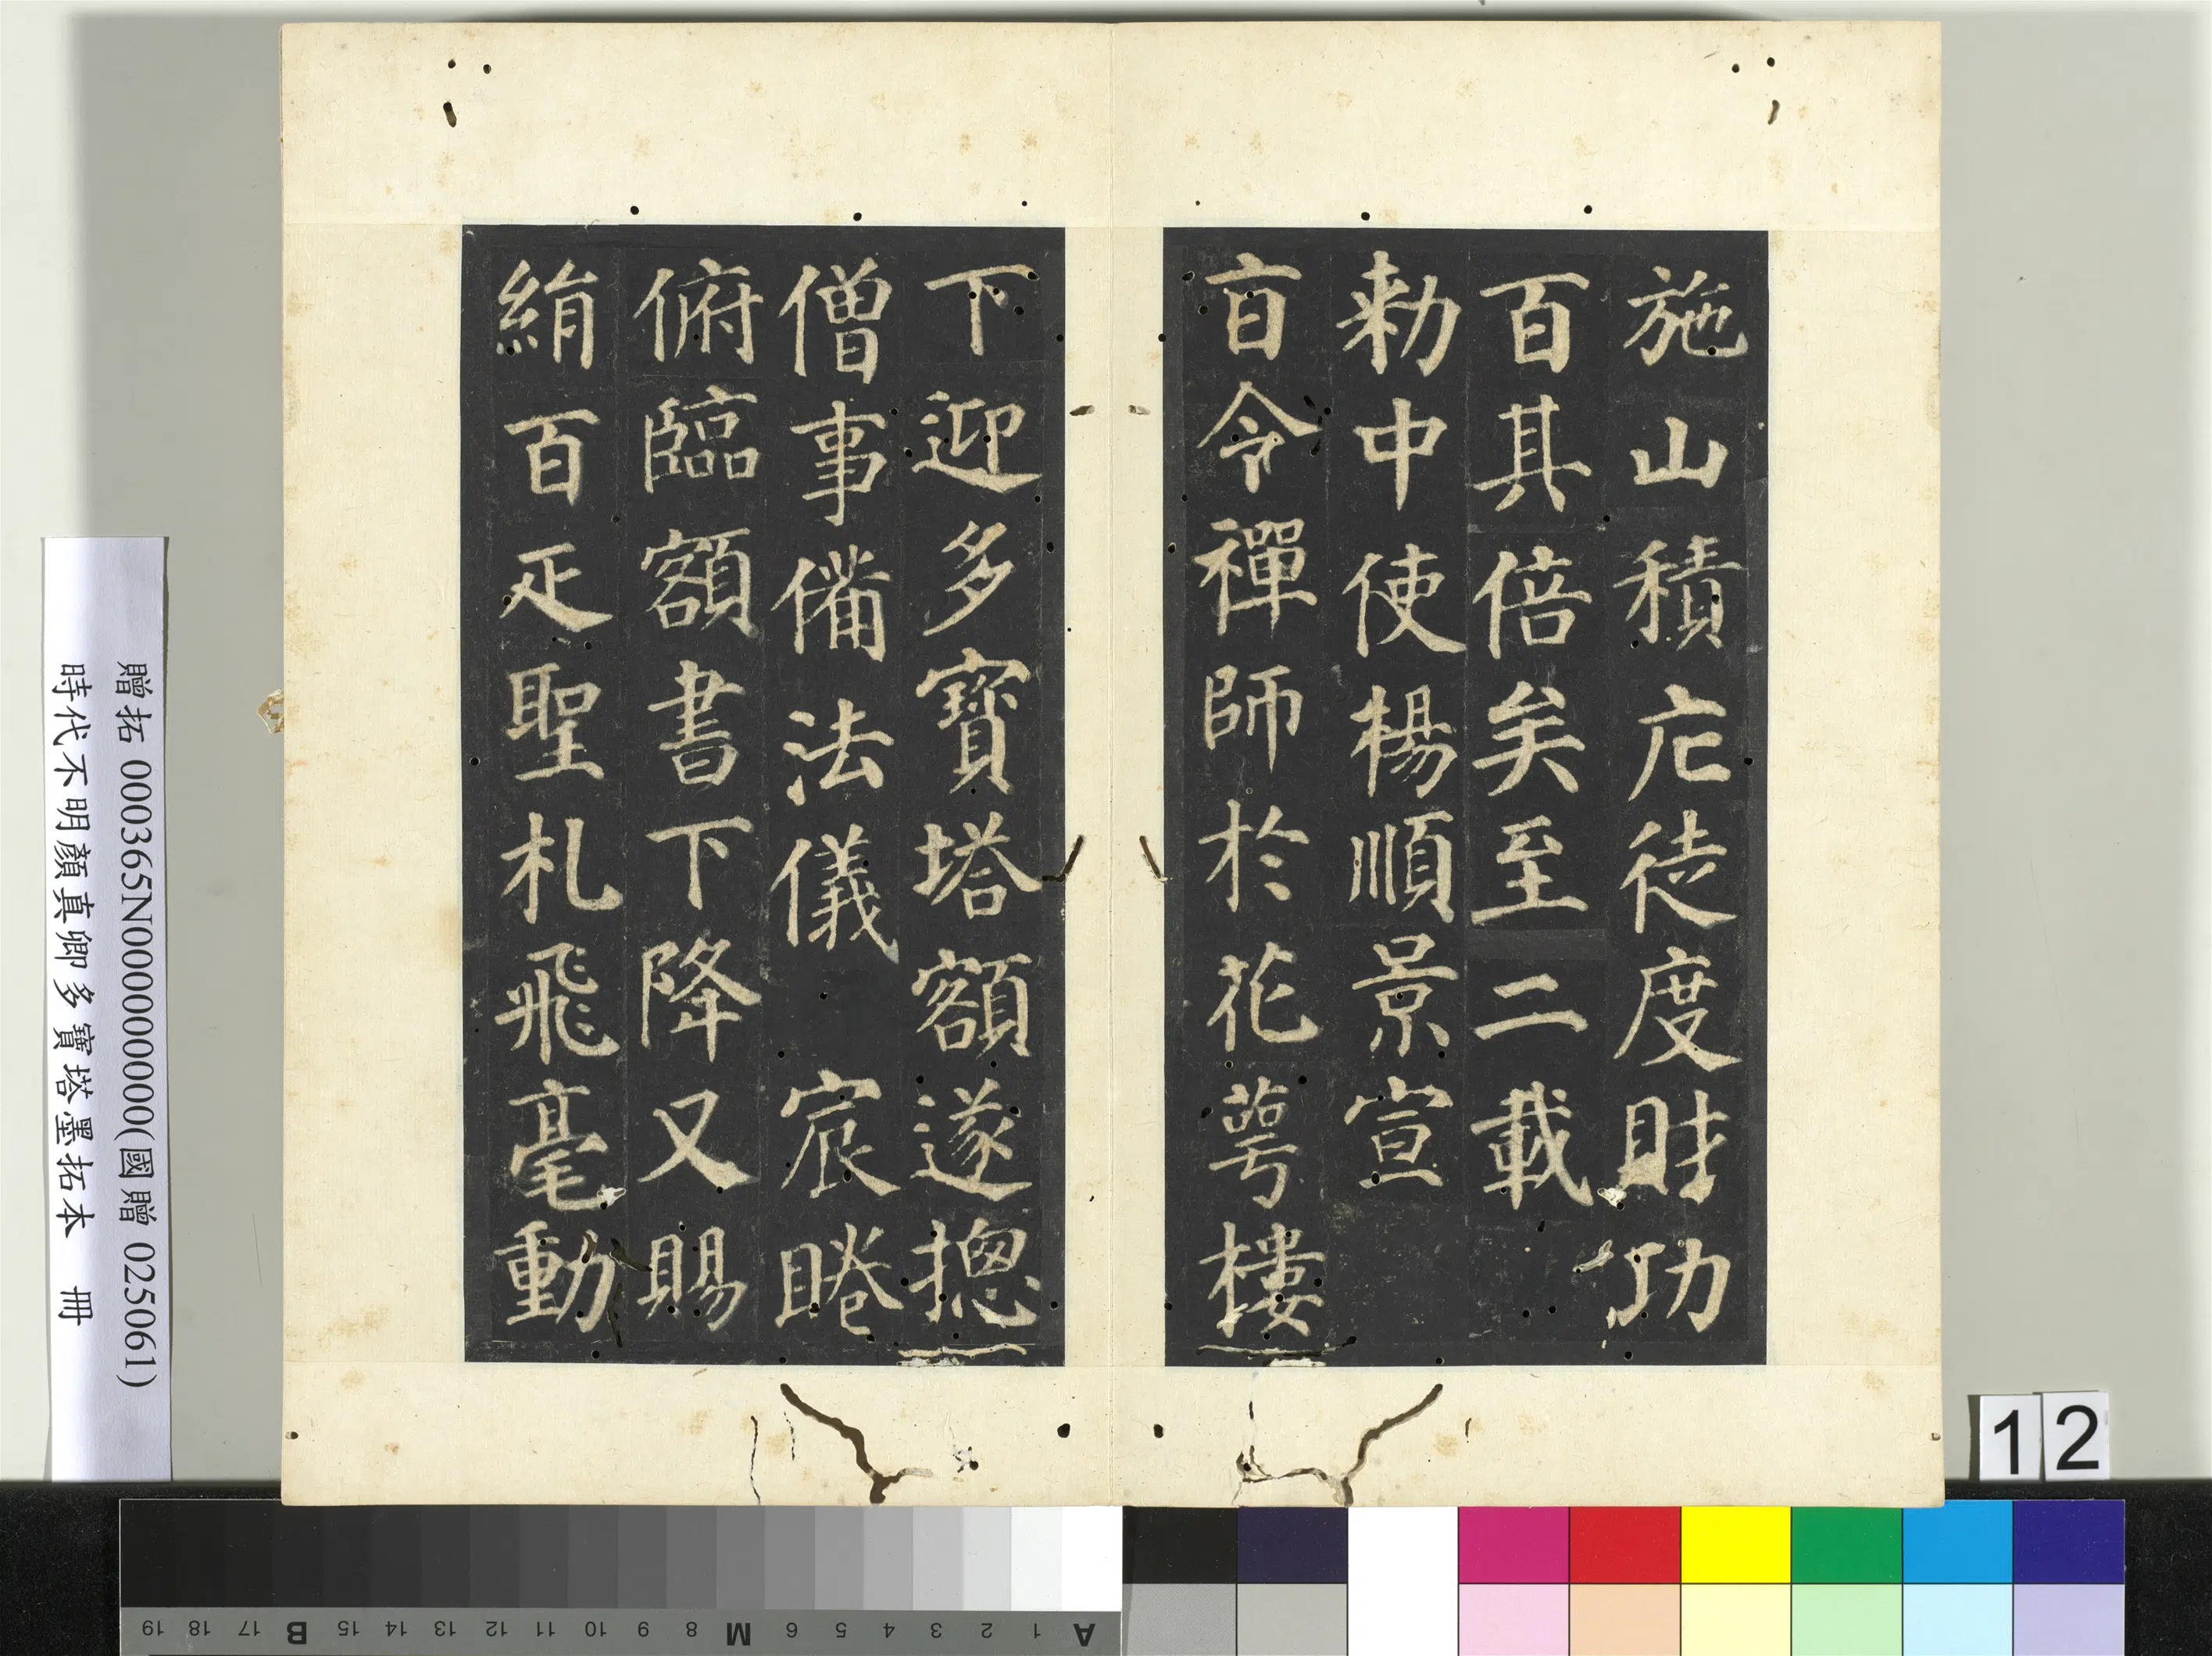 施山積庀徒度財功
百其倍矣至二載
勑中使楊順景宣
㫖令禪師於花萼樓
下迎多寶塔額遂摠
僧事俻法儀 宸睠
俯臨額書下降又賜
絹百疋聖札飛毫動
贈拓 000365N000000000(國贈 025061)
時代不明顏真卿多寶塔墨拓本 冊
12
A 1 2 3 4 5 6 M 8 9 10 11 12 13 14 15 B 17 18 19